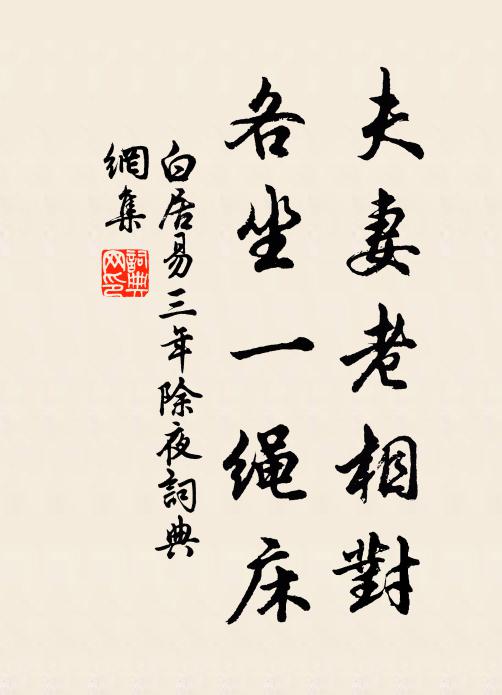 夫妻老相對
各坐一绳床
白居易三年除夜詞典
網集
詞典网印